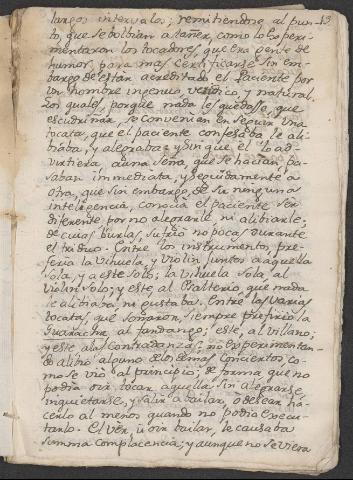 largos intervalos; remitiendose al pun- 13
to que se bolbian a tañer, como lo experi-
mentaron los tocadores, que era gente de
humor, para mas certificarse sin em-
bargo de estar acreditado el Paciente por
un hombre ingenuo, veridico, y natural.
Los quales, porque nada les quedasse, que
escudriñar, se convenian en seguir una
tocata, que el paciente confesaba le ali-
biaba, y alegraba: y sin que el lo ad-
virtiera a una seña, que se hacian, pa-
saban immediata, y seguidamente a
otra, que sin embargo, de su ninguna
inteligencia, conocia el paciente ser
diferente por no alegrarle, ni alibiarle;
de cuias burlas, sufrio no pocas durante
el triduo. Entre los instrumentos, pre-
feria la Vihuela, y Violin juntos a aquella
sola, y a este solo; la vihuela sola, al
violin solo; y este, al Psalterio, que nada
le alibiaba, ni gustaba. Entre las varias
tocatas, que sonaron, siempre prefirio la
Guaracha, al fandango; este, al villano;
y este a las Contradanzas; no experimentan-
do alibio alguno de los demas Conciertos co-
mo se vio al principio; de forma que no
podia oir tocar aquella sin alegrarse,
inquietarse, y salir a bailar, o desear ha-
cerlo al menos quando no podia execu-
tarlo. El ver, u oir bailar, le causaba
summa complacencia; y aunque no se viera